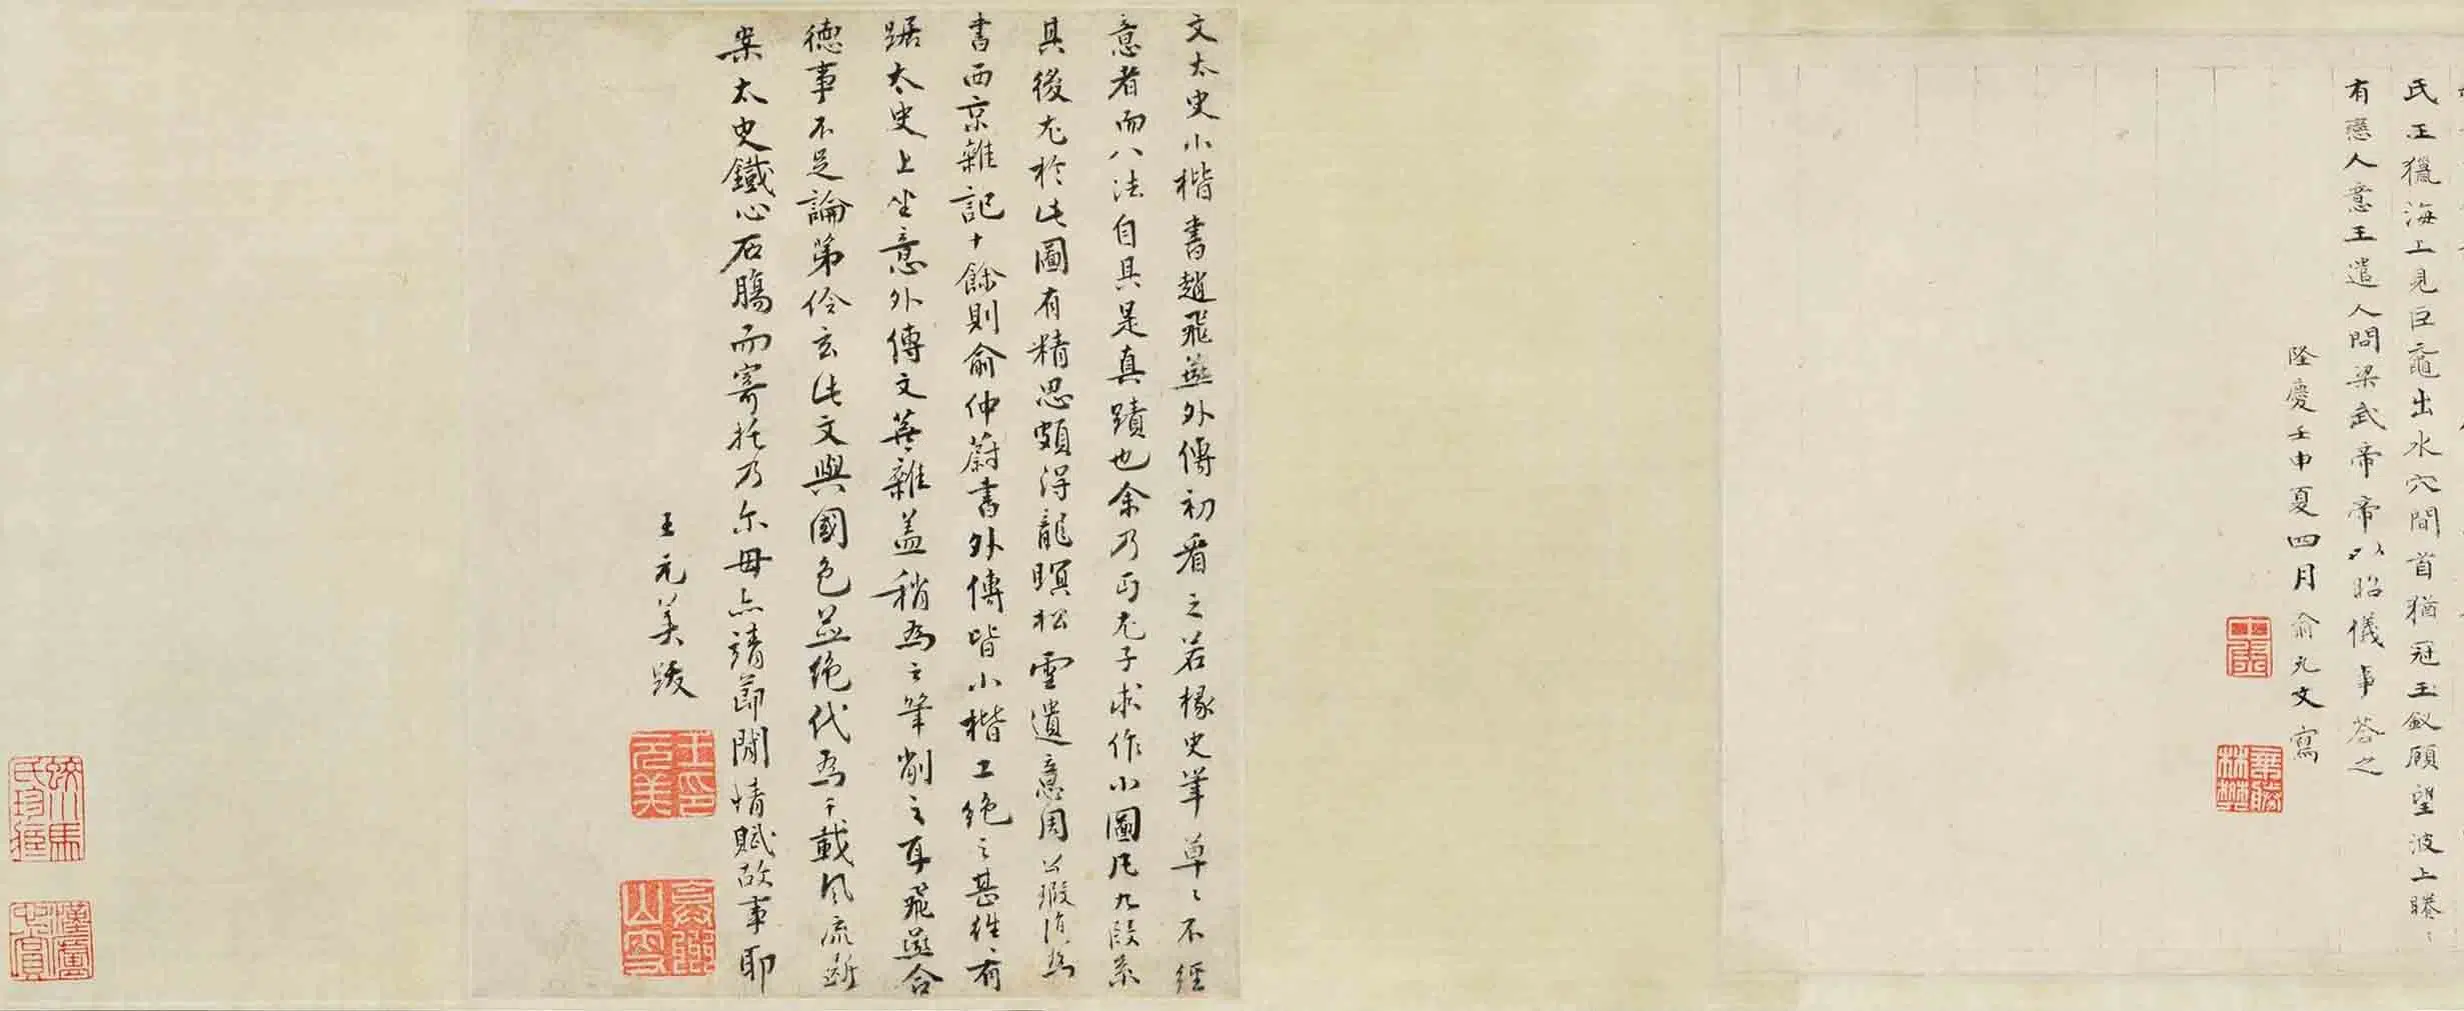 氏王獵海上見巨黿出水穴間首猶冠玉釵顧望波上睠〻
有戀人意王遣人問梁武帝帝以昭儀事荅之
隆慶壬申夏四月俞允文寫
文太史小楷書趙飛燕外傳初看之若椽史筆草〻不經
意者而八法自具是真蹟也余乃丐尤子求作小圖凡九段系
其後尤於此圖有精思頗得龍瞑松雪遺意周公瑕補為
書西京雜記十餘則俞仲蔚書外傳皆小楷工絕之甚往有
踞太史上坐意外傳文蕪雜蓋稍為之筆削之耳飛燕合
德事不足論第伶玄此文與國色並絕代為千載風流斷
案太史鐵心石腸而寄托乃尔毋亦靖節閒情賦故事耶
王元美跋
王印元美